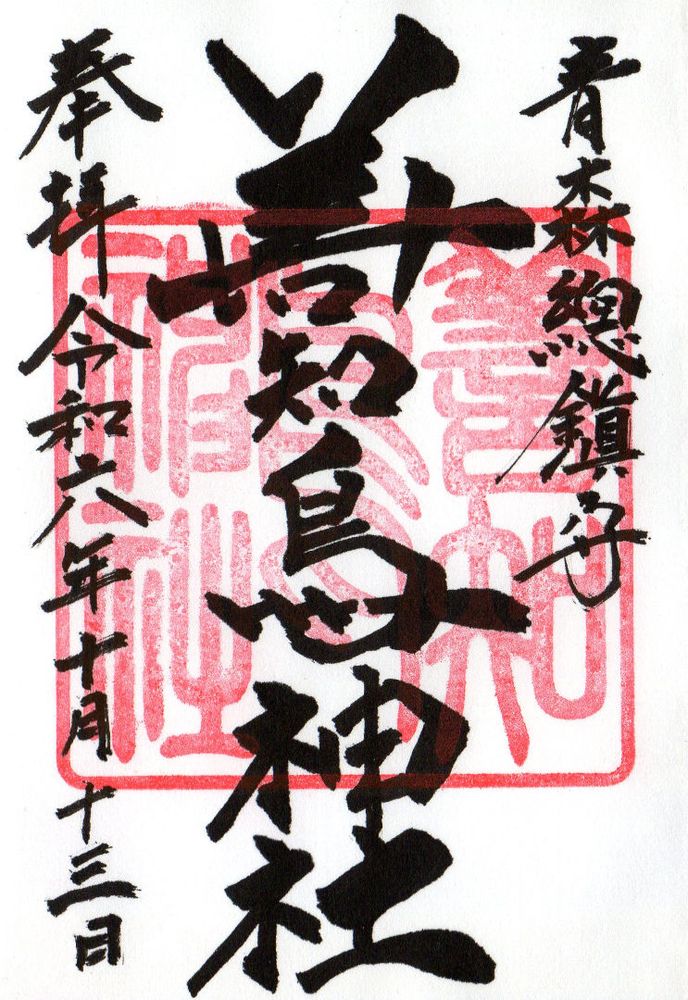 青森總鎮守
善知鳥神社
奉拝 令和六年十月十三日
善知鳥神社